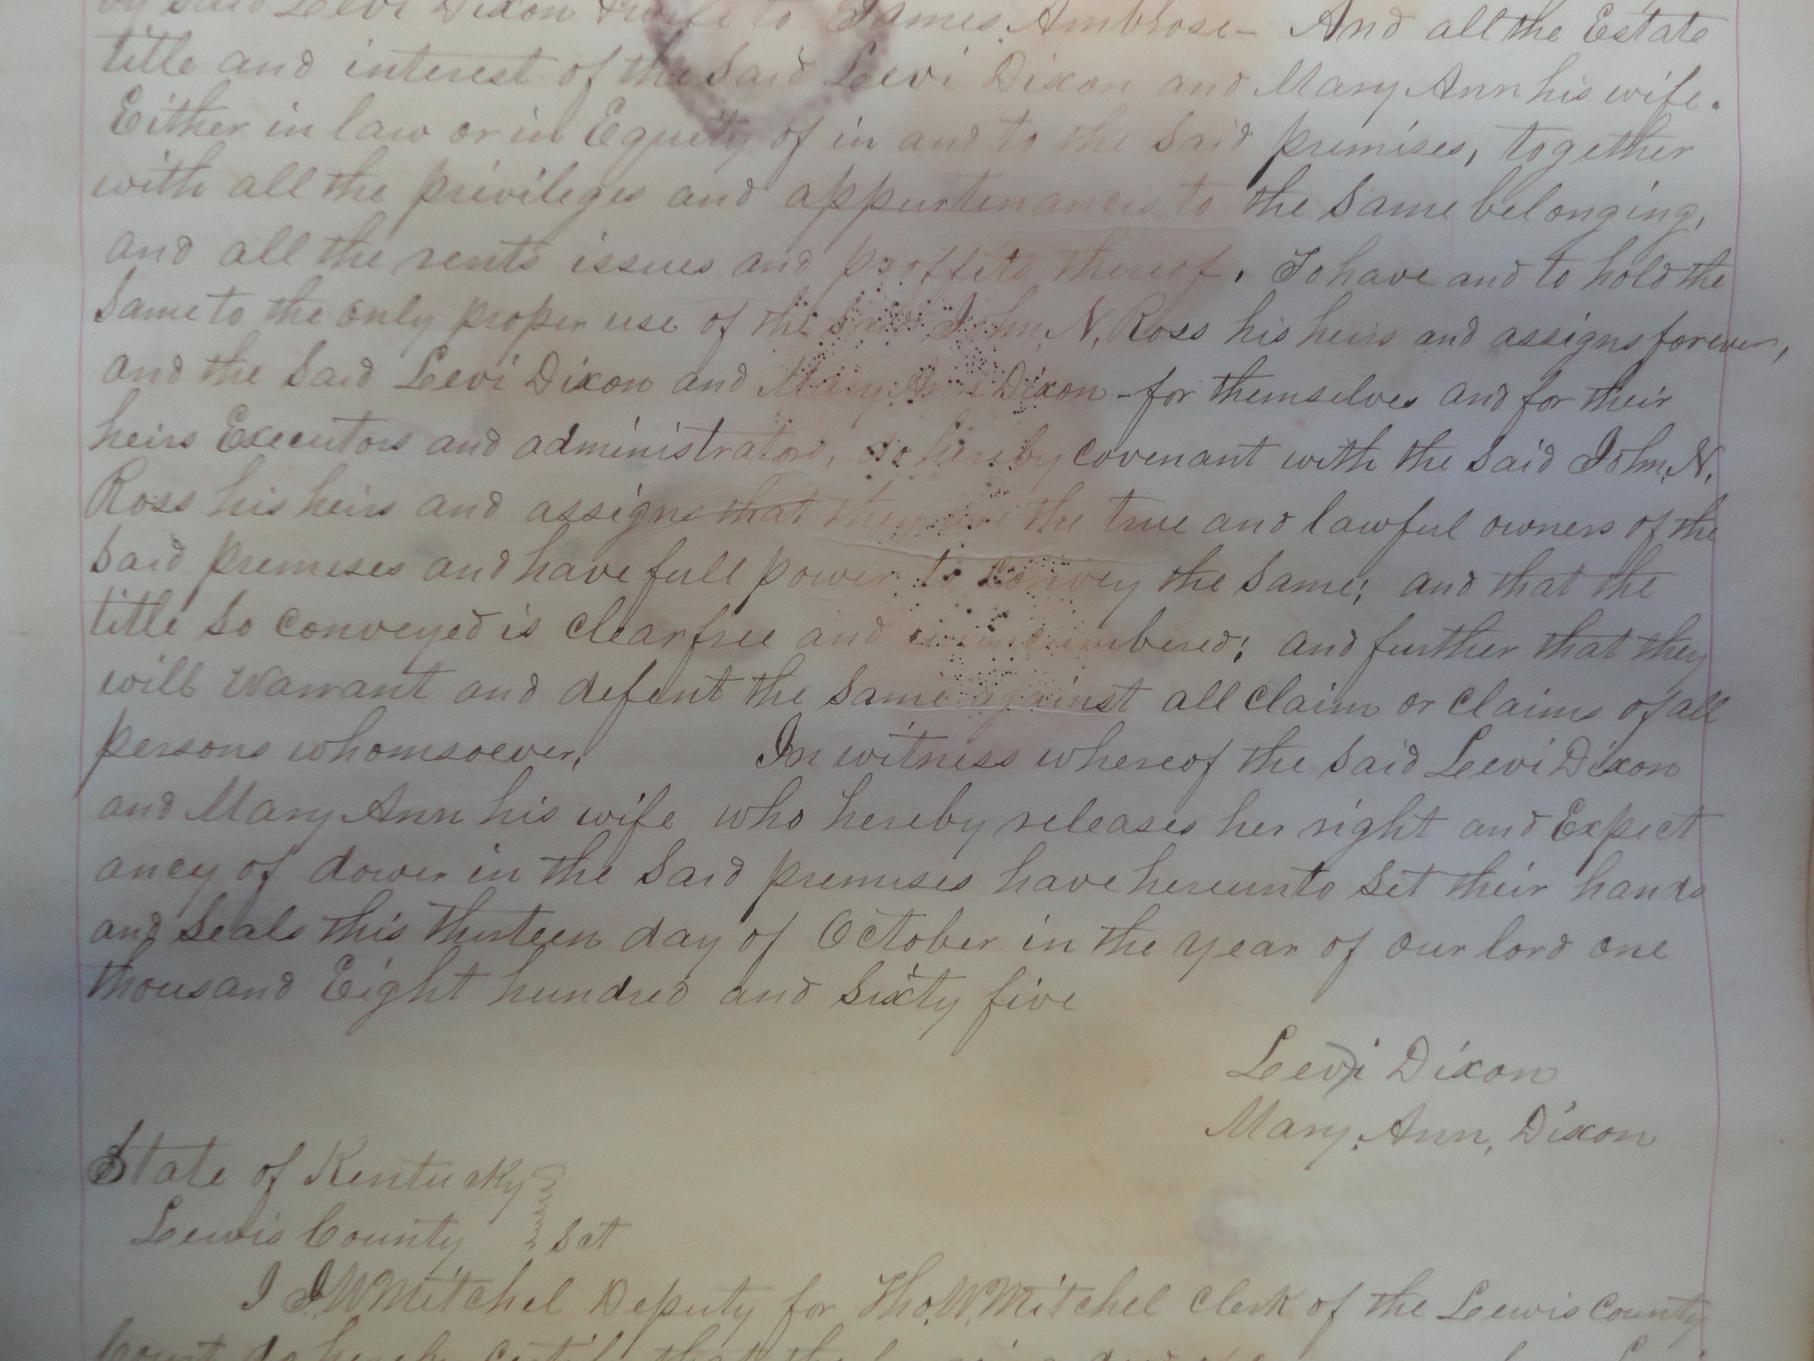 by said Levi Dixon & wife to James Ambrose - And all the Estate
title and interest of the said Levi Dixon and Mary Ann his wife.
Either in law or in Equity of in and to the said premises, together
with all the privileges and appurtenances to the same belonging,
and all the rents issues and proffits thereof. To have and to hold the
same to the only proper use of the said John N. Ross his heirs and assigns forever,
and the said Levi Dixon and Mary Ann Dixon - for themselves and for their
heirs Executors and administrators, do hereby covenant with the said John N.
Ross his heirs and assigns that they are the true and lawful owners of the
said premises and have full power to convey the same; and that the
title so conveyed is clear free and unincumbered; and further that they
will warrant and defent the same against all claim or claims of all
persons whomsoever, In witness whereof the said Levi Dixon
and Mary Ann his wife who hereby releases her right and Expect
ancy of dower in the said premises have hereunto set their hands
and seals this thirteen day of October in the year of our lord one
thousand Eight hundred and sixty five
Levi Dixon
Mary, Ann, Dixon
State of Kentucky
Lewis County } Sct
I J W Mitchel Deputy for Tho. W. Mitchel Clerk of the Lewis County
Court do hereby certify that the